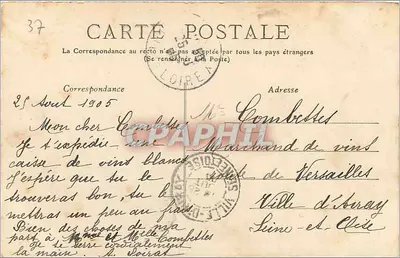 37
CARTE POSTALE
La Correspondance au recto n'est pas acceptée par tous les pays étrangers
(Se renseigner à la Poste)
Correspondance
Adresse
LOIRET
25 Aout 1905
Mon cher Combettes
Je t'expédie une
caisse de vins blancs
J'espère que tu le
trouveras bon, tu le
mettras un peu au frais
Bien des choses de ma
part à Mme et Melle Combettes
Je te serre cordialement
la main.
M Combettes
Marchand de vins
de Versailles
Ville d'Avray
Seine et Oise
VILLE-D'AVRAY
SEINE-ET-OISE
CPAPHIL